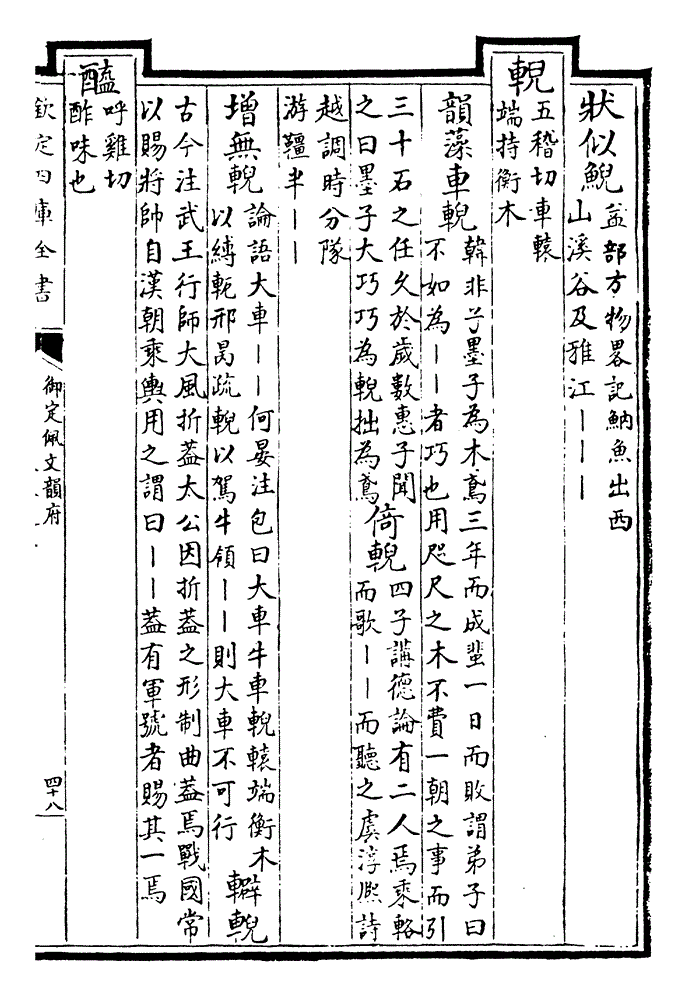 狀似鯢
益部方物畧記魶魚出西
山溪谷及雅江丨丨丨
輗
五稽切車轅
端持衡木
韻藻車輗
韓非子墨子為木鳶三年而成蜚一日而敗謂弟子曰
不如為丨丨者巧也用咫尺之木不費一朝之事而引
三十石之任久於歲數惠子聞
之曰墨子大巧巧為輗拙為鳶
倚輗
四子講德論有二人焉乘輅
而歌丨丨而聽之虞淳熙詩
越調時分隊
游韁半丨丨
增無輗
論語大車丨丨何晏注包曰大車牛車輗轅端衡木
以縛軛邢昺疏輗以駕牛領丨丨則大車不可行
䡶輗
古今注武王行師大風折葢太公因折葢之形制曲葢焉戰國常
以賜將帥自漢朝乘輿用之謂曰丨丨葢有軍號者賜其一焉
醯
呼雞切
酢味也
欽定四庫全書
御定佩文韻府
四十八